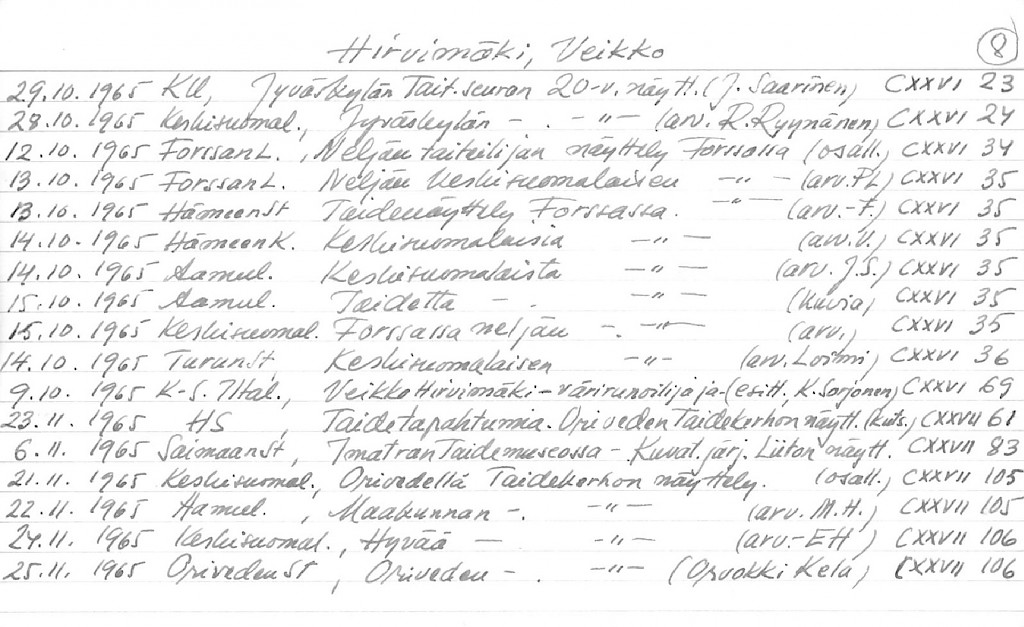 Hirvimäki, Veikko 8
29.10.1965 KU, Jyväskylän Tait.seuran 20-v. näytt. (J. Saarinen) CXXVI 23
28.10.1965 Keskisuomal., Jyväskylän - . - " - (arv. R. Ryynänen) CXXVI 24
12.10.1965 Forssan L., Neljän taiteilijan näyttely Forssassa (osall.) CXXVI 34
13.10.1965 Forssan L. Neljän Keskisuomalaisen - " - (arv. PL) CXXVI 35
13.10.1965 Hämeen St Taidenäyttely Forssassa. - " - (arv.-F.) CXXVI 35
14.10.1965 Hämeen K. Keskisuomalaisia - " - (arv. V.) CXXVI 35
14.10.1965 Aamul. Keskisuomalaista - " - (arv. J.S.) CXXVI 35
15.10.1965 Aamul. Taidetta - . - " - (kuvia) CXXVI 35
15.10.1965 Keskisuomal. Forssassa neljän - . - " - (arv.) CXXVI 35
14.10.1965 Turun St, Keskisuomalaisen - " - (arv. Loimi) CXXVI 36
9.10.1965 K-S. Iltal., Veikko Hirvimäki - värirunoilija ja - (esitt. K. Sarjonen) CXXVI 69
23.11.1965 HS, Taidetapahtumia. Oriveden Taidekerhon näytt. (kuts.) CXXVII 61
6.11.1965 Saimaan St, Imatran Taidemuseossa - Kuvat. järj. Liiton näytt. CXXVII 83
21.11.1965 Keskisuomal., Orivedellä Taidekerhon näyttely. (osall.) CXXVII 105
22.11.1965 Aamul., Maakunnan - . - " - (arv. M.H.) CXXVII 105
24.11.1965 Keskisuomal., Hyvää - - " - (arv.-EH) CXXVII 106
25.11.1965 Oriveden St, Oriveden - . - " - (Orvokki Kelä) CXXVII 106